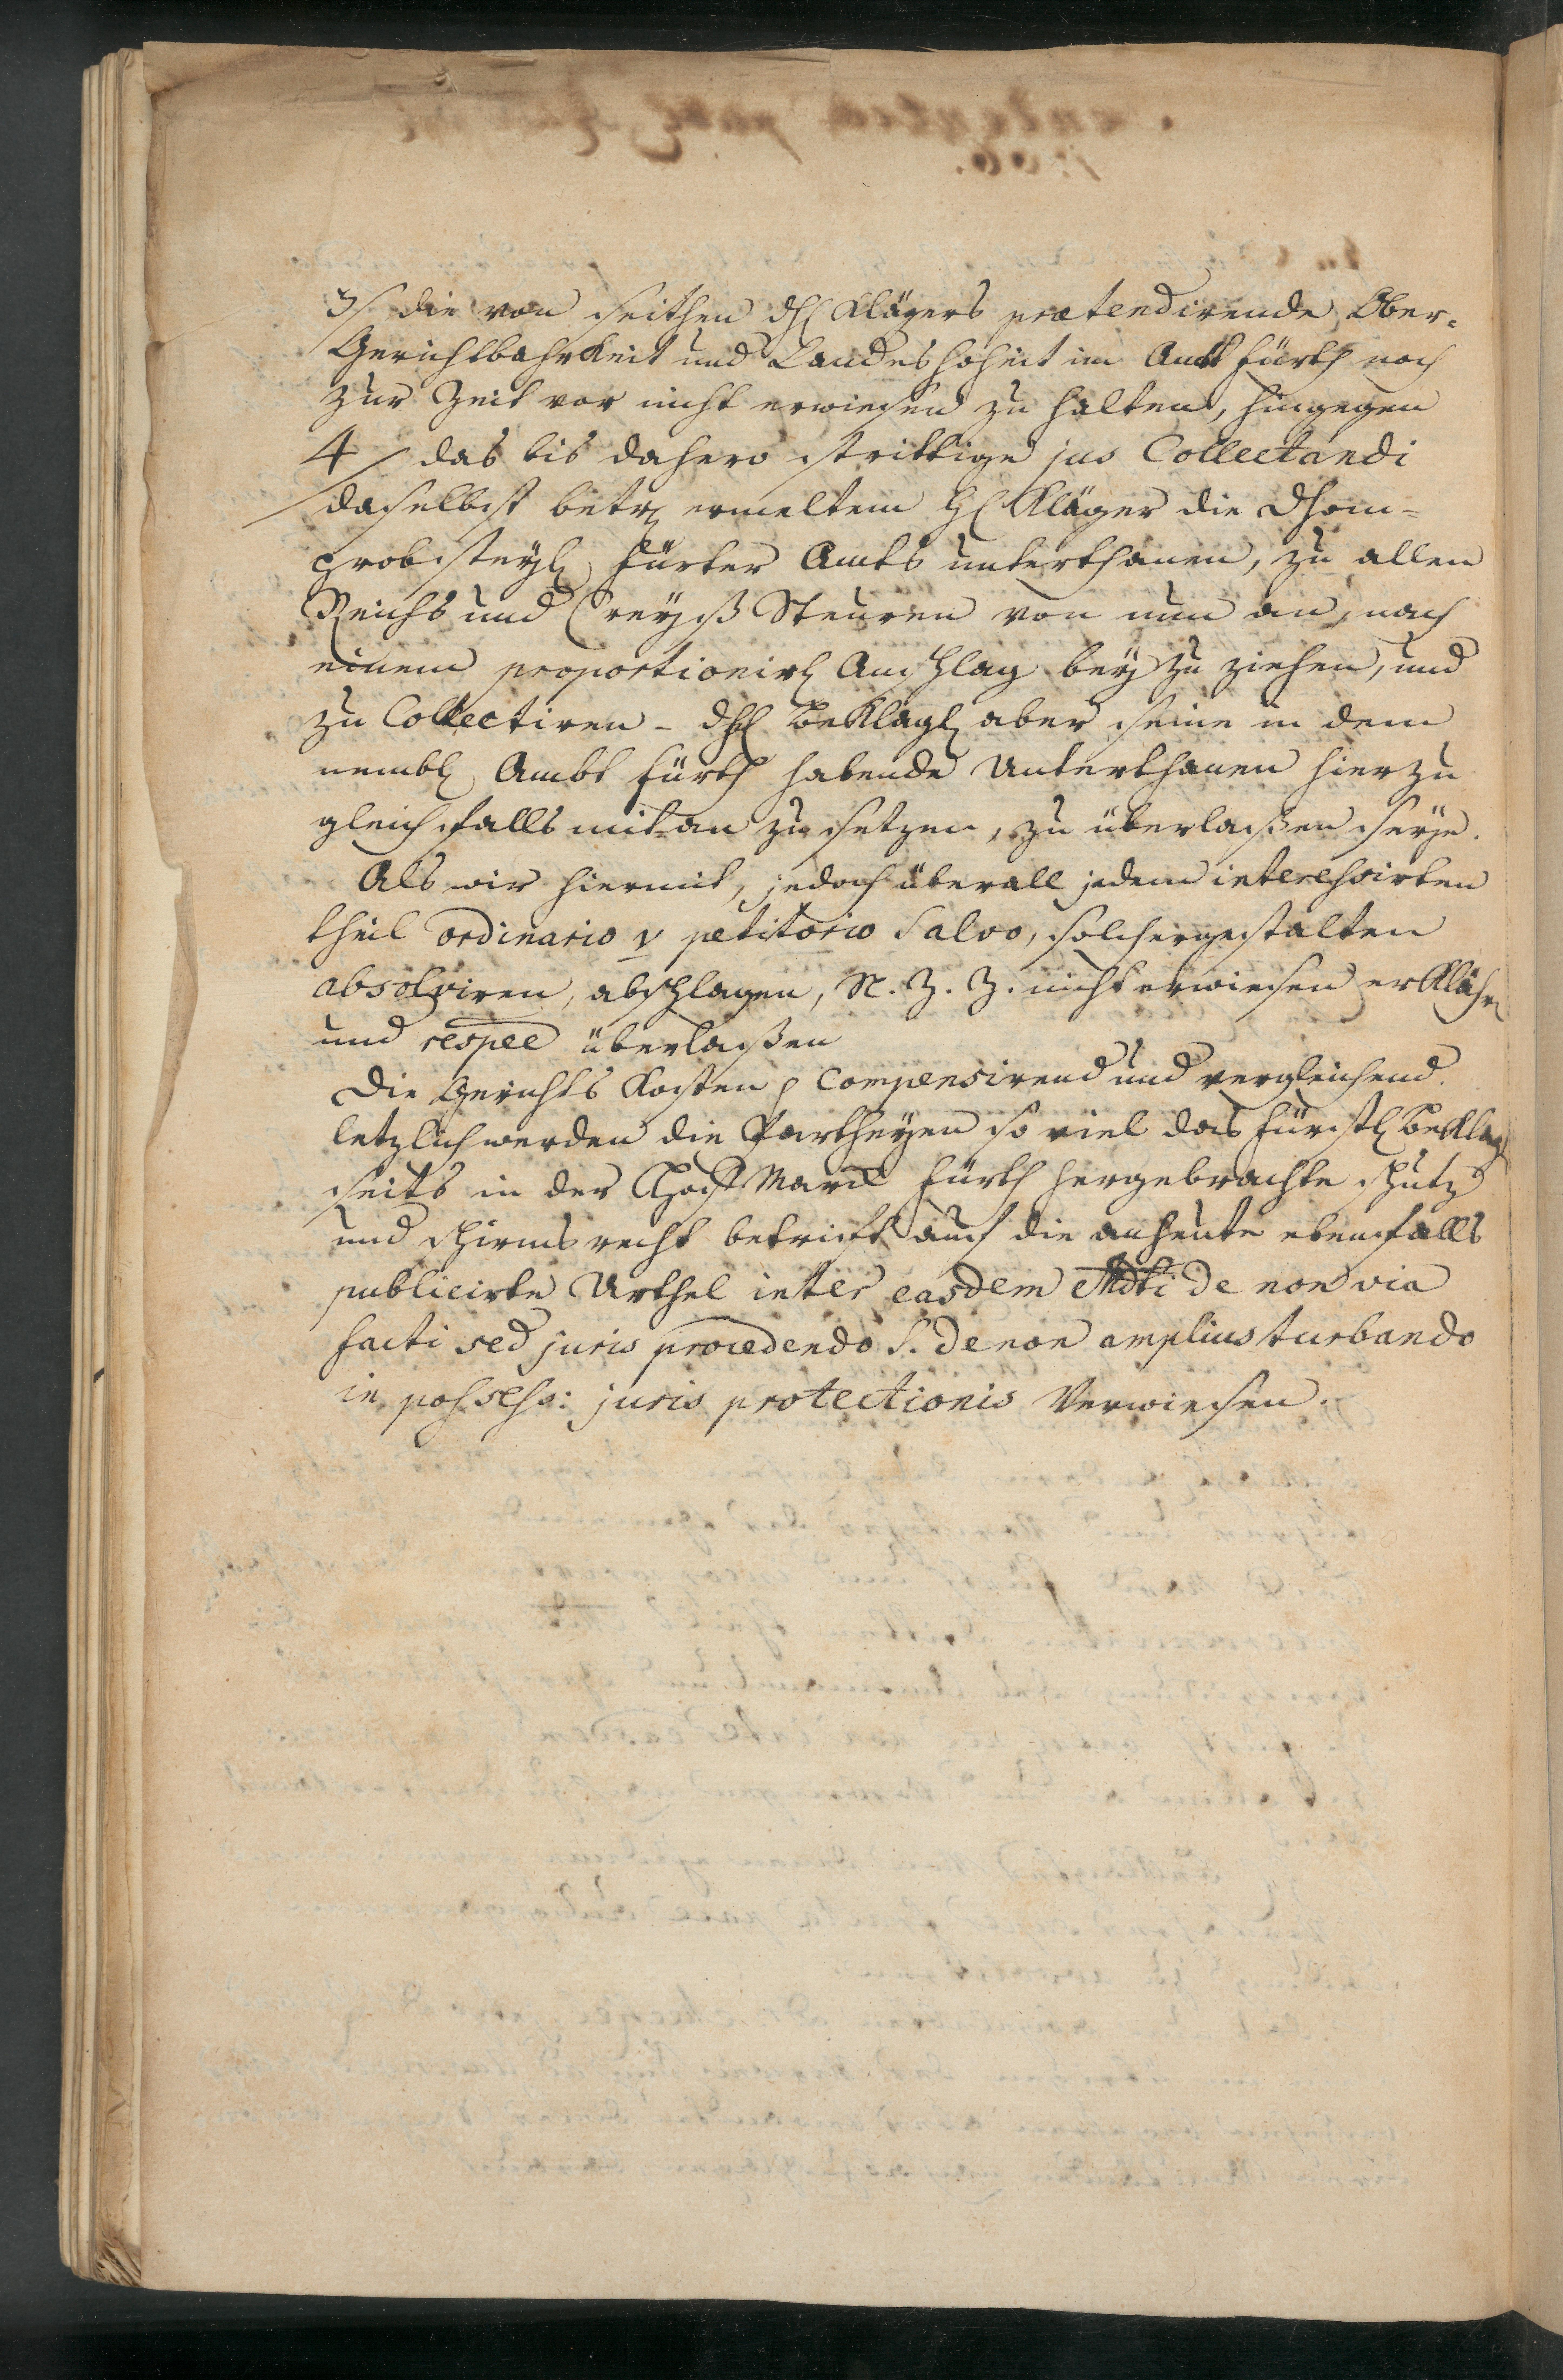 3/ die von seithen dhl Klägers prætendirende Ober-
Gerichtbahrkeit und Landes hoheit im Ambt Fürth noch
zur Zeit vor nicht erwiesen zu halten, hingegen
4/ das bis dahero strittige jus Collectandi
daselbst ermeltem Hl Kläger die Dhom-
probsteyl Fürter Ambts unterthanen, zu allen
Reichs und Creyß Steuren von nun an, nach
einem proportionirl Anschlag bey zu ziehen, und
zu Collectiren - dhl Beklagl aber seine in dem
nembl Ambt Fürth habende Unterthanen hierzu
gleichfalls mit an zu setzen, zu überlaßen seye.
Als wir hiermit, jedoch überall jedem interessirten
theil ordinario v petitorio Salvo, solchergestalten
absolviren, abschlagen, N. Z. Z. nicht erwiesen erklähr
und respee überlaßen
Die Gerichts Kosten Compensirend und vergleichend.
letzlich werden die Partheyen so viel das fürstl Beklag
seits in der Hofmarck Fürth hergebrachte schutz
und schirms recht betrifft auf die anheute ebenfalls
publicirte Urthel inter easdem Mdti de non via
facti sed juris procedendo S. de non amplius turbando
in possess: juris protectionis Verwiesen.